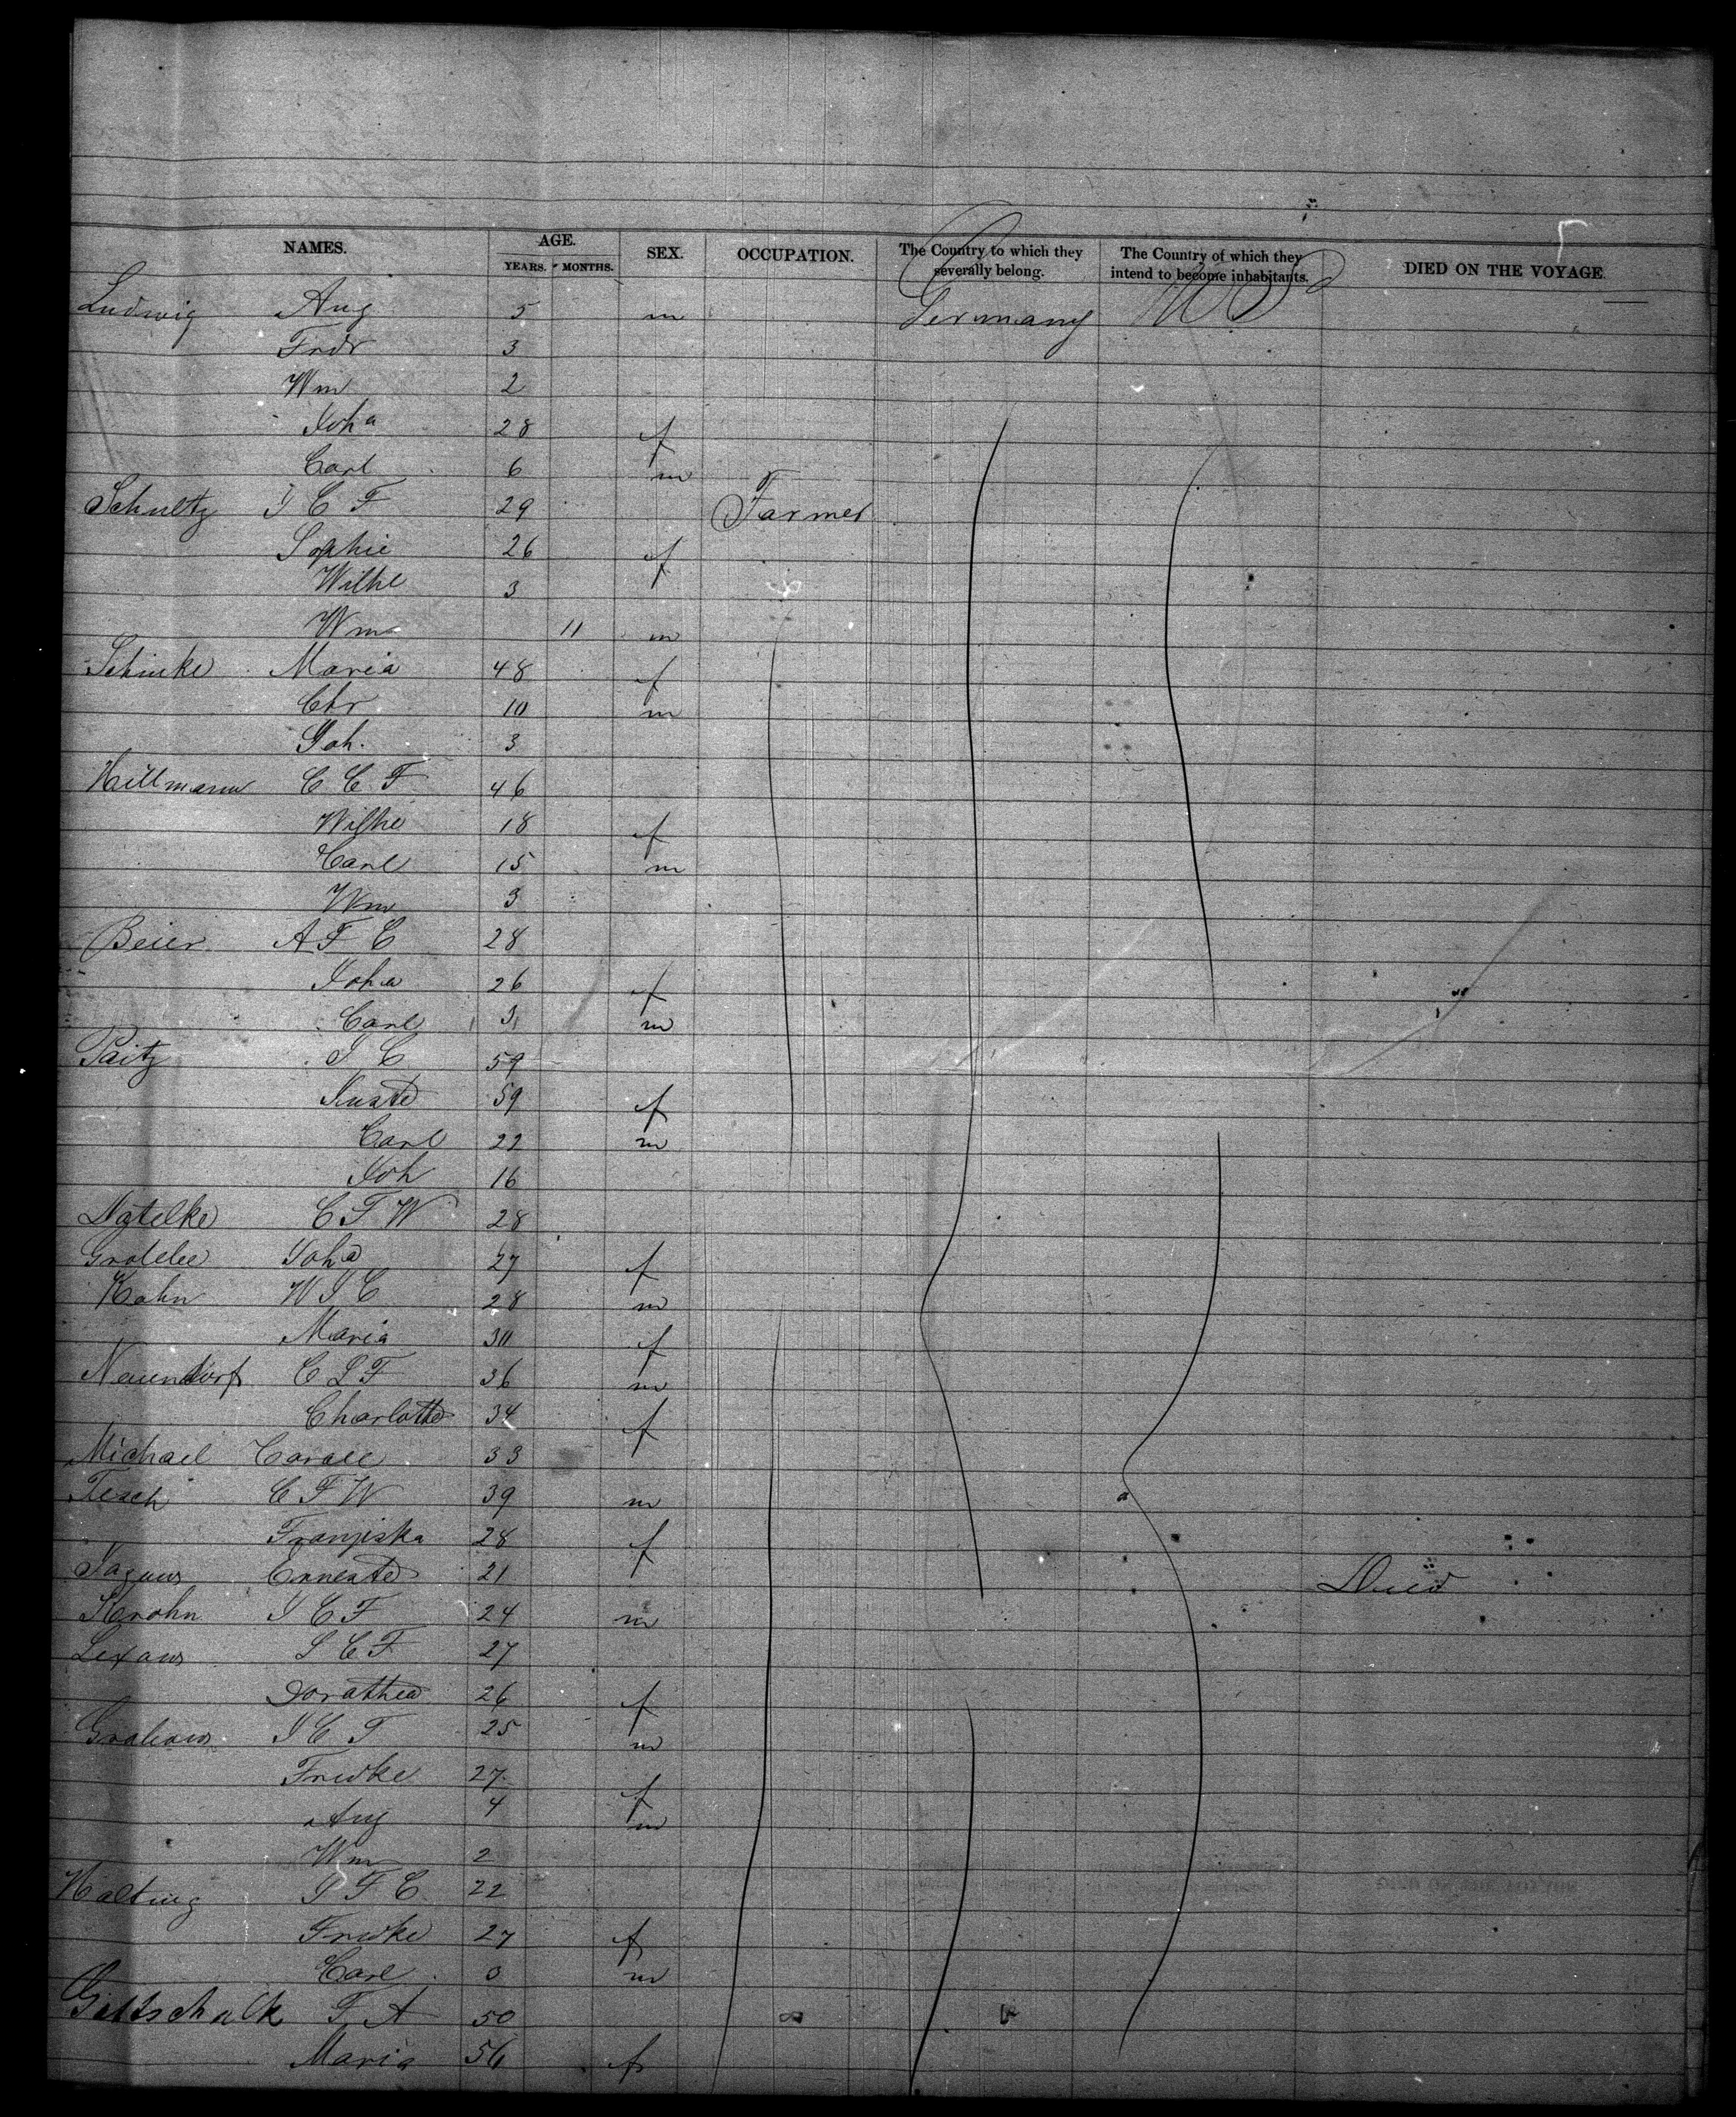 NAMES. AGE. SEX. OCCUPATION. The Country to which they severally belong. The Country of which they intend to become inhabitants. DIED ON THE VOYAGE.
YEARS. MONTHS.
Ludwig Aug 5 m Germany U S
Fridr 3
Wm 2
Joha 28 f
Carl 6 m
Schultz J C F 29 Farmer
Sophie 26 f
Wilhe 3
Wm 11 m
Schinke Maria 48 f
Chr 10 m
Joh. 3
Hillmann C C F 46
Wilhe 18 f
Carl 15 m
Wm 3
Beier A F C 28
Joha 26 f
Carl 3 m
Paitz J C 59
59 f
Carl 22 m
Joh 16
C F W 28
Joha 27 f
Kohn W J C 28 m
Maria 30 f
Nauendorf C L F 36 m
Charlotte 34 f
Michael 33
Tesch C F W 39 m
Franziska 28 f
Erneste 21 Died
Krohn J C F 24 m
27
Dorathea 26 f
J C F 25 m
Friedke 27 f
Aug 4 m
Wm 2
Holting J F C 22
Fridke 27 f
Carl 0 m
Gottschalk F. A 50
Maria 56 f